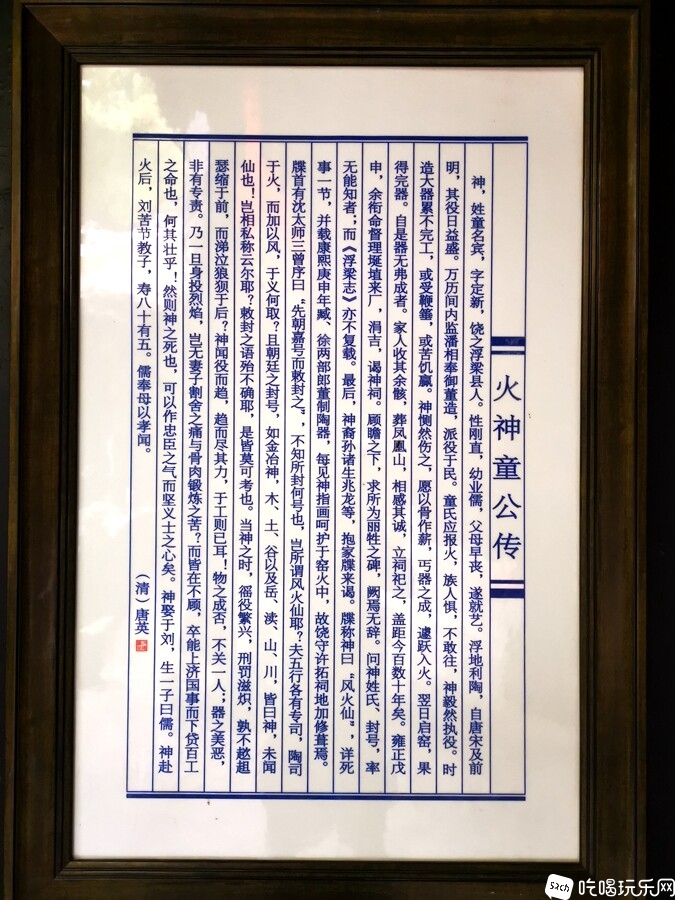 火神童公传
神，姓童名宾，字定新，饶之浮梁县人。性刚直，幼业儒，父母早丧，遂就艺。浮地利陶，自唐宋及前
明，其役日益盛。万历间内监潘相奉御董造，派役于民。童氏应报火，族人惧，不敢往，神毅然执役。时
造大器累不完工，或受鞭箠，或苦饥羸。神恻然伤之，愿以骨作薪，丐器之成，遽跃入火。翌日启窑，果
得完器。自是器无弗成者。家人收其余骸，葬凤凰山，相感其诚，立祠祀之，盖距今百数十年矣。雍正戊
申，余衔命督理埏埴来厂，涓吉，谒神祠。顾瞻之下，求所为丽牲之碑，阙焉无辞。问神姓氏、封号，率
无能知者；而《浮梁志》亦不复载。最后，神裔孙诸生兆龙等，抱家牒来谒。牒称神曰“风火仙”，详死
事一节，并载康熙庚申年臧、徐两部郎董制陶器，每见神指画呵护于窑火中，故饶守许拓祠地加修葺焉。
牒首有沈太师三曾序曰“先朝嘉号而敕封之”，不知所封何号也，岂所谓风火仙耶？夫五行各有专司，陶司
于火，而加以风，于义何取？且朝廷之封号，如金冶神，木、土、谷以及岳、渎、山、川，皆曰神，未闻
仙也！岂相私称云尔耶？敕封之语殆不确耶，是皆莫可考也。当神之时，徭役繁兴，刑罚滋炽，孰不趑趄
瑟缩于前，而涕泣狼狈于后？神闻役而趋，趋而尽其力，于工则已耳！物之成否，不关一人；器之美恶，
非有专责。乃一旦身投烈焰，岂无妻子割舍之痛与骨肉锻炼之苦？而皆在不顾，卒能上济国事而下贷百工
之命也，何其壮乎！然则神之死也，可以作忠臣之气而坚义士之心矣。神娶于刘，生一子曰儒。神赴
火后，刘苦节教子，寿八十有五。儒奉母以孝闻。
（清）唐英
5ach 吃喝玩乐网